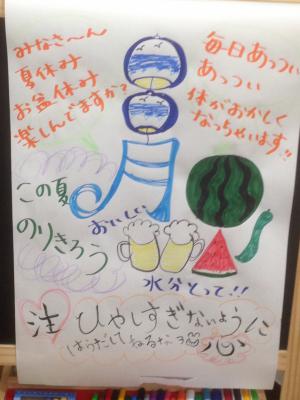 みなさ~ん
夏休み
お盆休み
楽しんでますか?
毎日あっつい
あっつい
体がおかしく
なっちゃいます!!
月
この夏
のりきろう
おいしい
水分とって!!
注 ひやしすぎないように
はらだしてねるなヨ